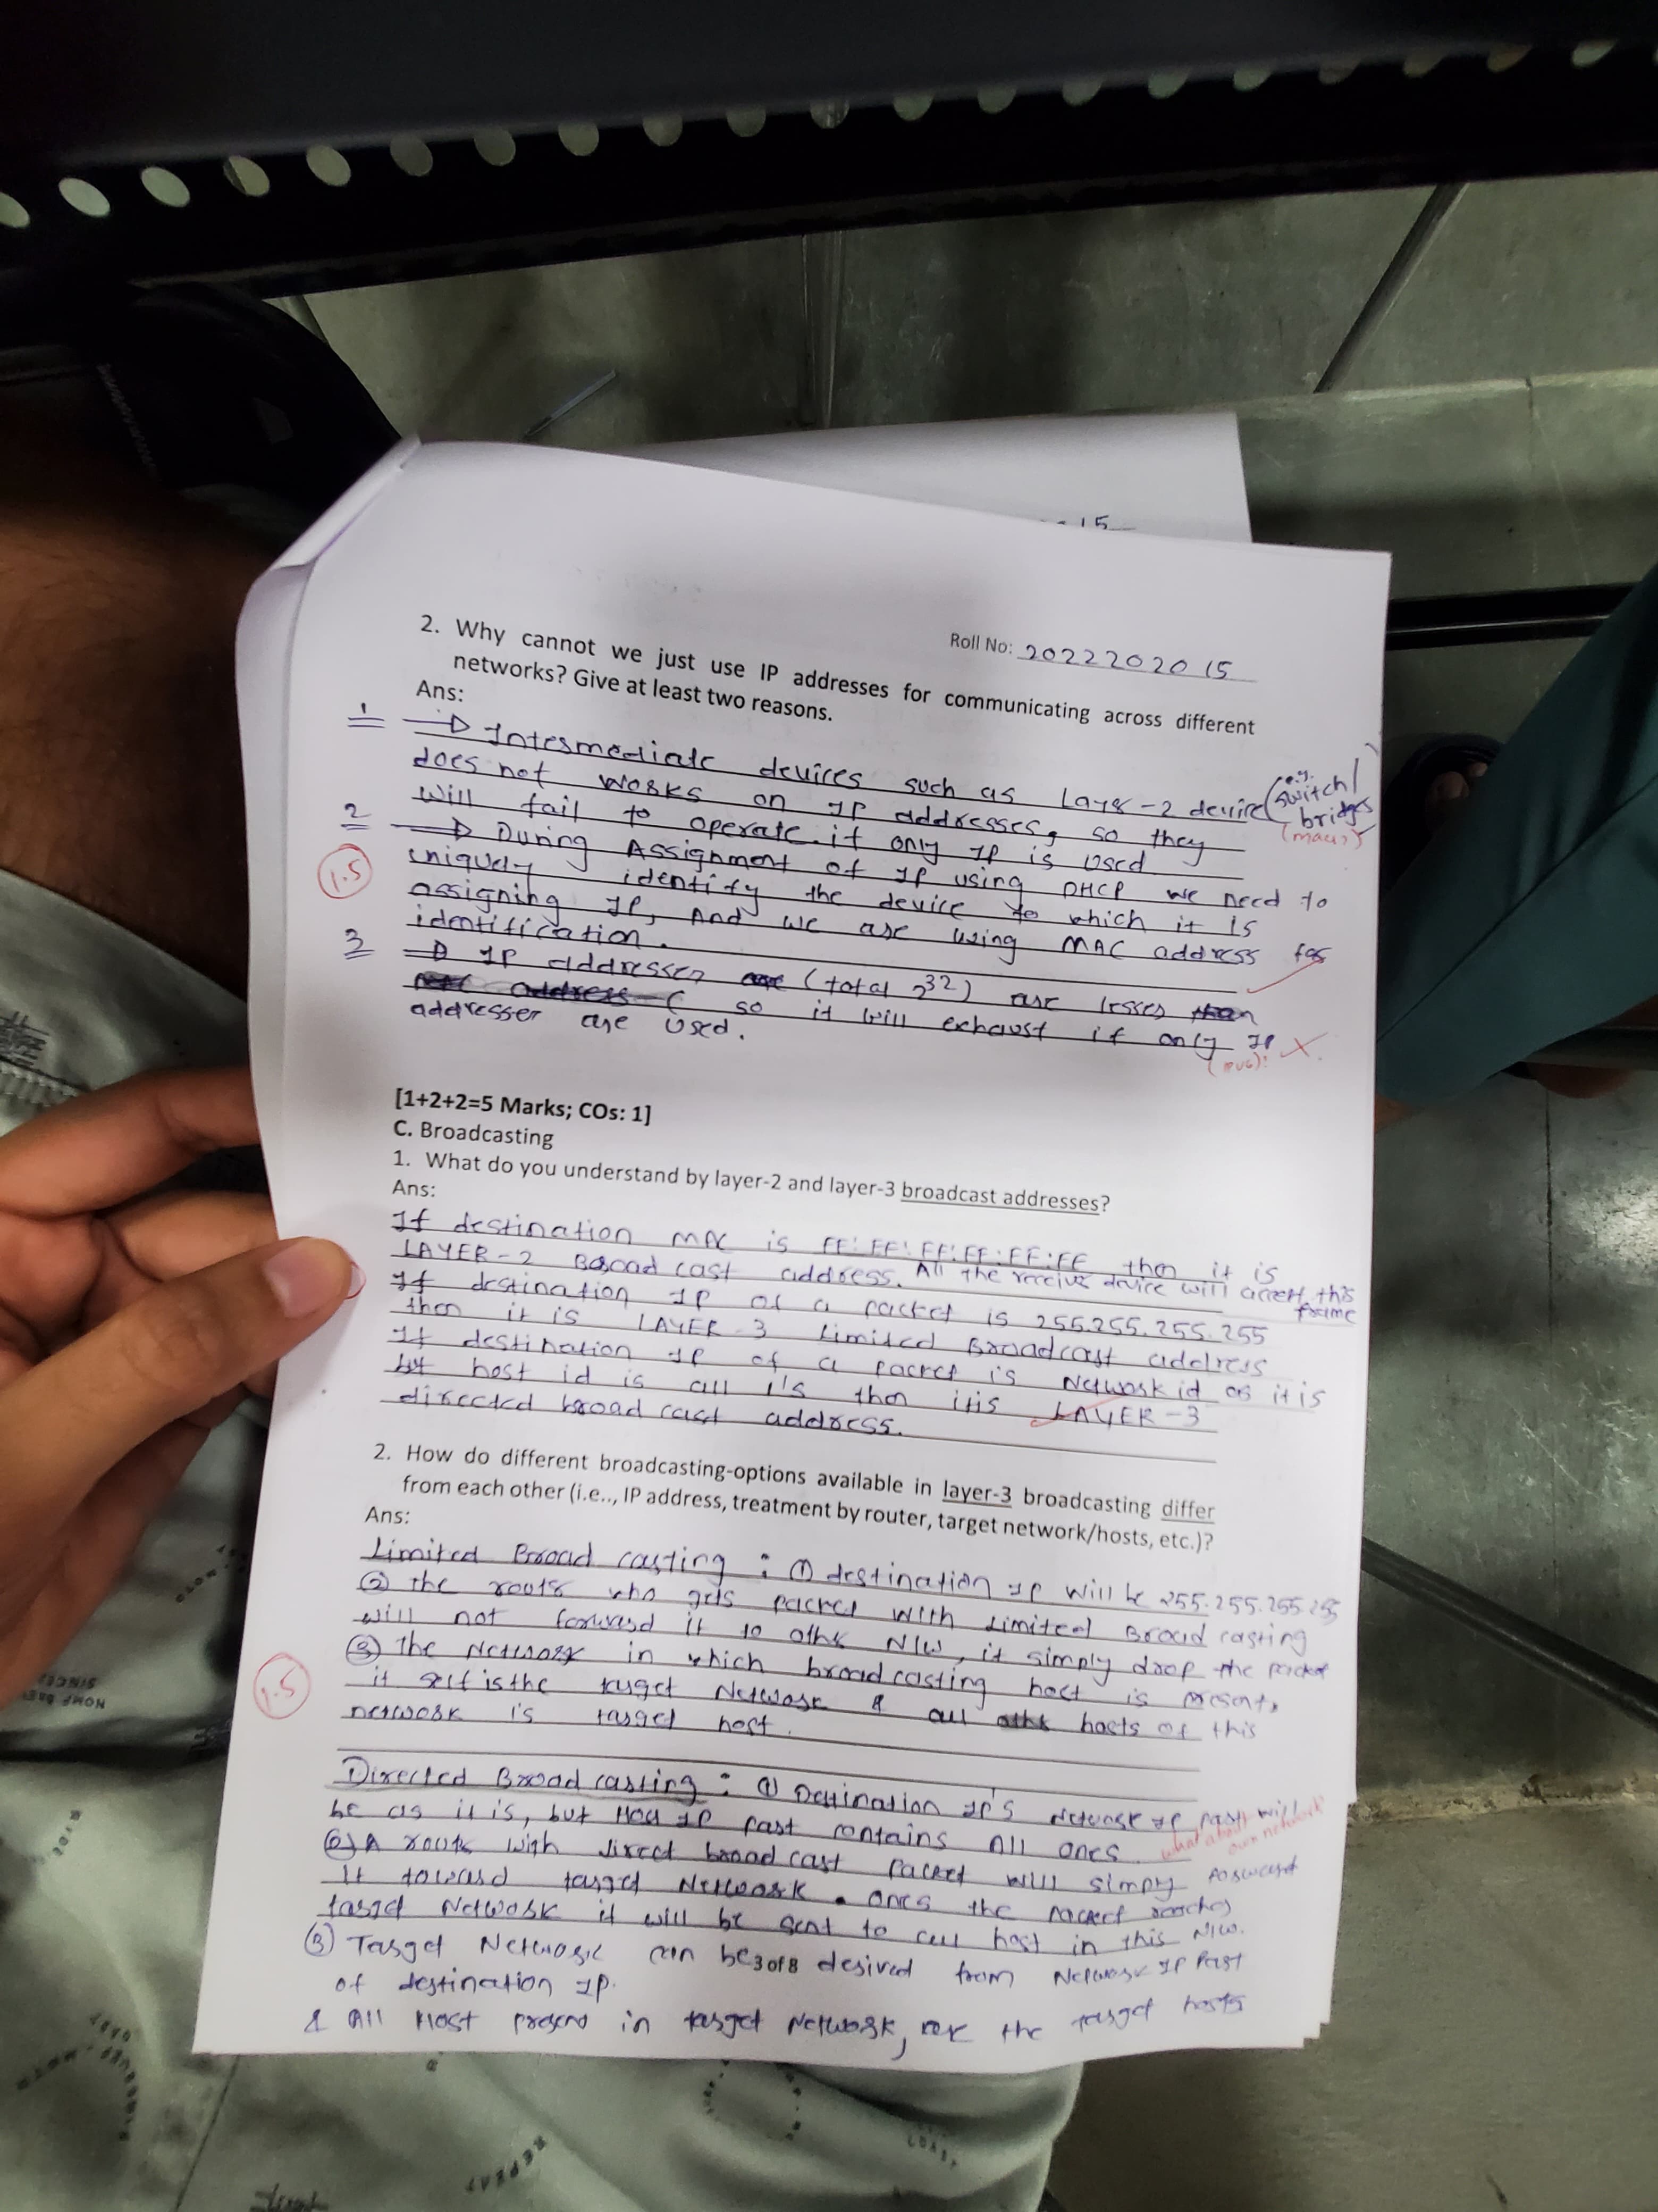 15
Roll No: 2022202015
2. Why cannot we just use IP addresses for communicating across different
networks? Give at least two reasons.
Ans:
1 → Intermediate devices such as Layer-2 device (e.g. switch/
bridges)
does not works on IP addresses, so they
will fail to operate if only IP is used
2 → During Assignment of IP using DHCP we need to
uniquely identify the device to which it is
assigning IP, And we are using MAC address for
identification.
1.5
3 → IP addresses (total 2^32) are lesser than
so it will exhaust if only IP
addresser are used.
(IPv6)? X
[1+2+2=5 Marks; COs: 1]
C. Broadcasting
1. What do you understand by layer-2 and layer-3 broadcast addresses?
Ans:
If destination MAC is FF:FF:FF:FF:FF:FF then it is
LAYER-2 Broad cast address. All the receive device will accept this
frame
If destination IP of a packet is 255.255.255.255
then it is LAYER-3 Limited Broadcast address
If destination IP of a packet is Network id as it is
but host id is all 1's then itis LAYER-3
directed broad cast address.
2. How do different broadcasting-options available in layer-3 broadcasting differ
from each other (i.e.., IP address, treatment by router, target network/hosts, etc.)?
Ans:
Limited Broad casting : ① destination IP will be 255.255.255.255
② the router who gets packet with Limited Broad casting
will not forward it to other N/W, it simply drop the packet
③ The Network in which broadcasting host is present,
it self is the target Network & all hosts of this
network is target host.
1.5
Directed Broad casting : ① Destination IP's Network IP part will
be as it is, but Host IP part contains All ones.
what about own network
② A router with direct broad cast packet will simply forward
It toward target Network. ones the packet reaches
target Network it will be sent to all host in this N/W.
③ Target Network can be derived from Network IP Part
3 of 8
of destination IP.
& All Host present in target Network, are the target hosts